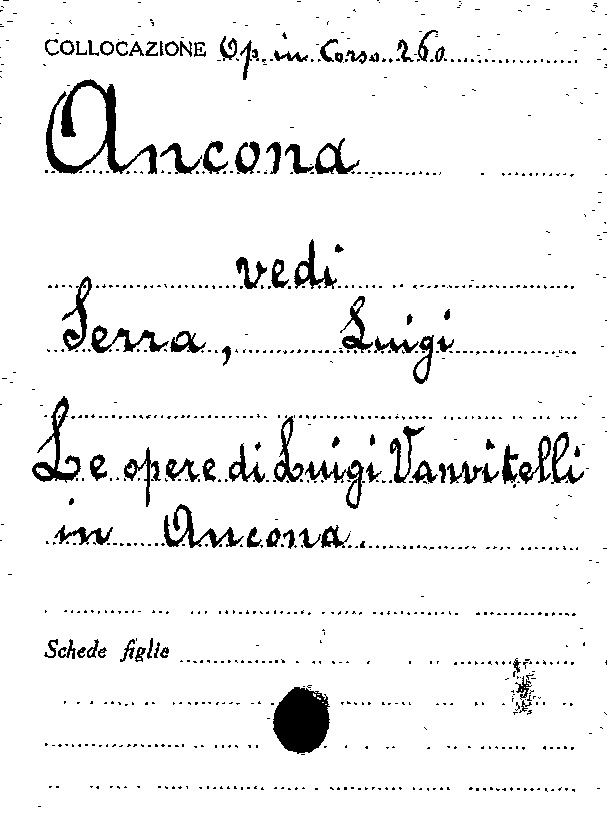 COLLOCAZIONE Op. in Corso 260
Ancona
vedi
Serra, Luigi
Le opere di Luigi Vanvitelli
in Ancona.
Schede figlie